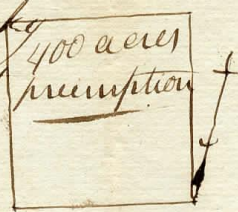 400 acres
preemption